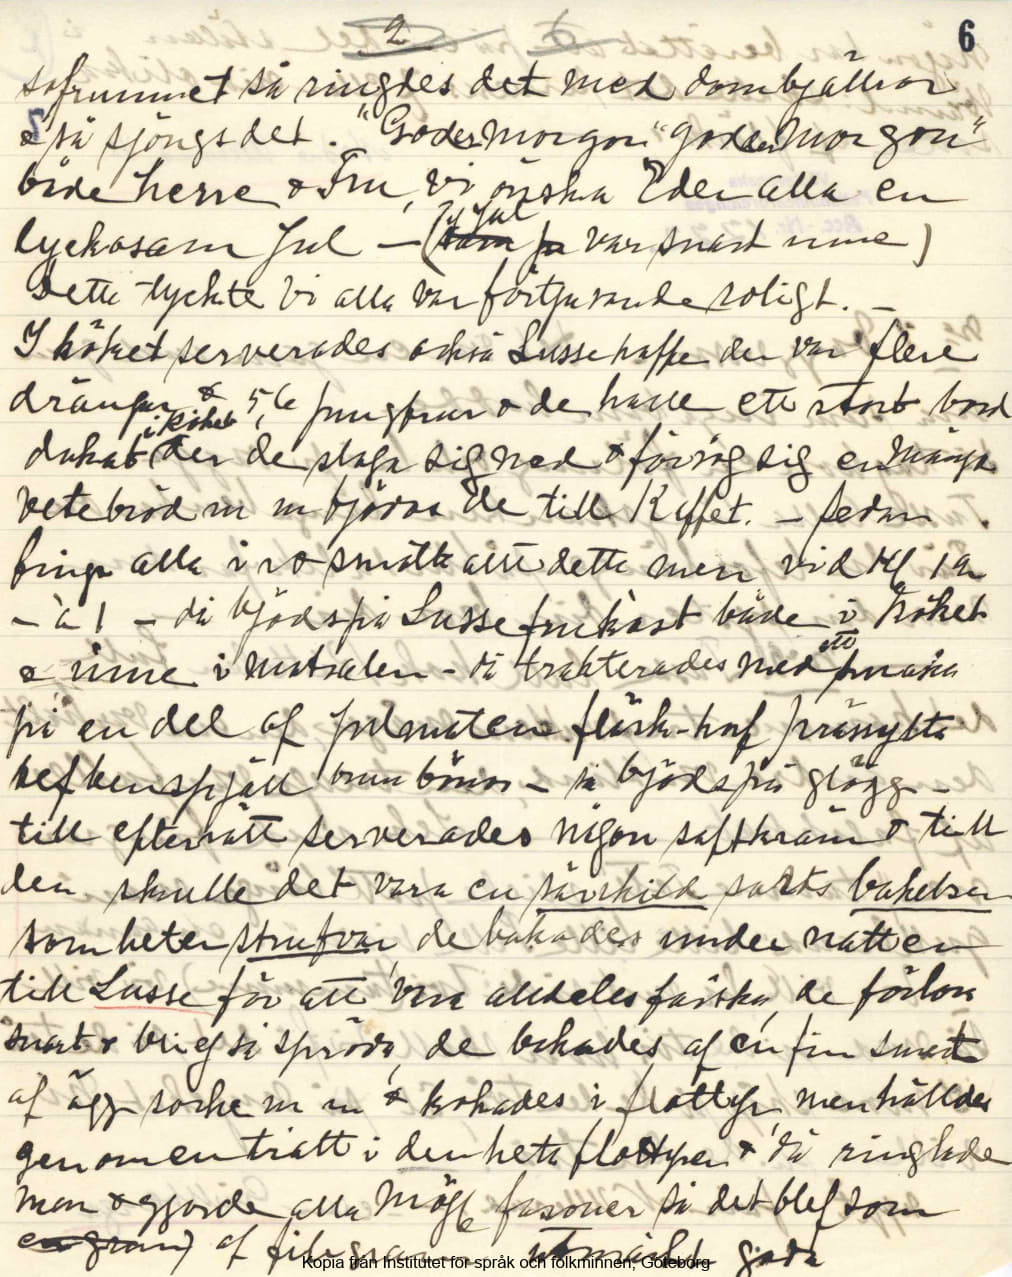 2 6
sofrummet så ringdes det med dombjällror
& så sjöngs det. "Goder morgon" goder morgon"
både herre & Fru, vi önska Eder alla en
lyckosam Jul — (ty Jul var snart inne)
Detta tyckte vi alla var förtjusande roligt. —
I köket serverades också Lussekaffe der var flere
drängar & 5, 6 jungfrur & de hade ett stort bord
dukat i köket der de slogo sig ned & försåg sig en många
vetebröd m m bjödos de till Kaffet. — sedan
fingo alla i ro smälta allt detta men vid Kl 12
– à 1 – då bjöds på Lusse frukost både i köket
& inne i matsalen – då trakterades med ett smaka
på en del af julmaten fläsk-korf pressylta
refbenspjäll bruna bönor – så bjöds på glögg –
till efterrätt serverades någon saftkräm & till
den skulle det vara en särskild sorts bakelser
som heter strufvor, de bakades under natten
till Lusse för att vara alldeles färska, de förlora
snart & bli ej så spröda, de bakades af en fin smet
af ägg socker m m & kokades i flottyr men hälldes
genom en tratt i den heta flottyren & då ringlade
man & gjorde alla möjl fasoner så det blef som
af filigran utmärkt goda
Kopia från Institutet för språk och folkminnen, Göteborg